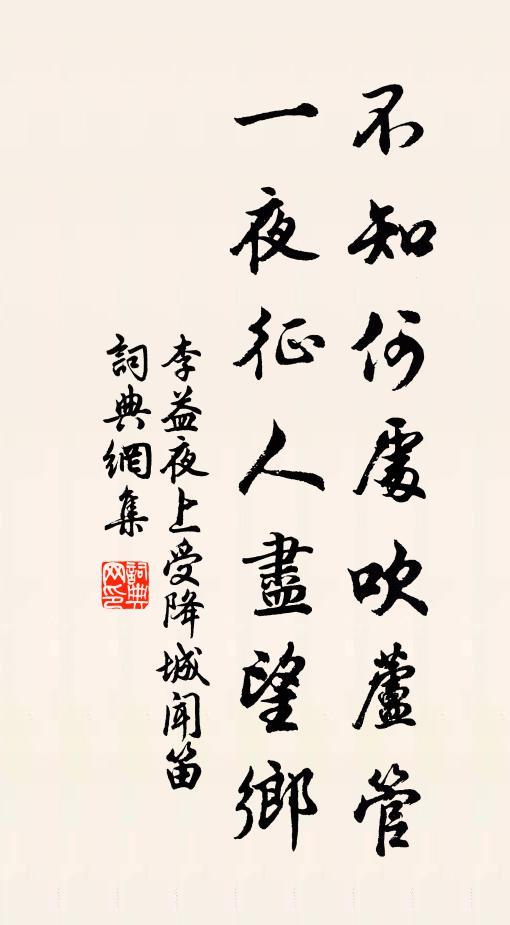 不知何處吹蘆管
一夜征人盡望鄉
李益夜上受降城聞笛
詞典網集
詞典網印